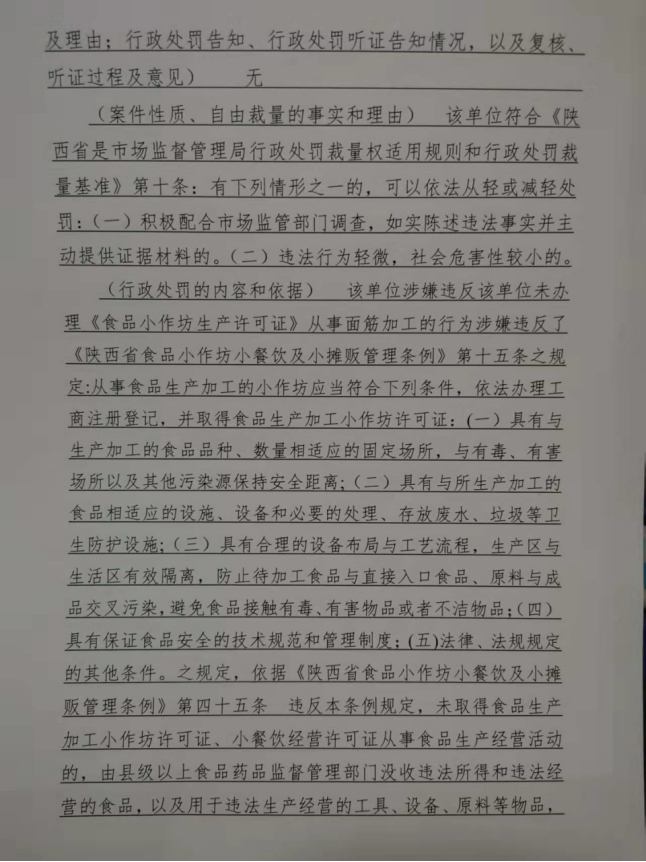 及理由；行政处罚告知、行政处罚听证告知情况，以及复核、
听证过程及意见） 无
（案件性质、自由裁量的事实和理由） 该单位符合《陕
西省是市场监督管理局行政处罚裁量权适用规则和行政处罚裁
量基准》第十条：有下列情形之一的，可以依法从轻或减轻处
罚：（一）积极配合市场监管部门调查，如实陈述违法事实并主
动提供证据材料的。（二）违法行为轻微，社会危害性较小的。
（行政处罚的内容和依据） 该单位涉嫌违反该单位未办
理《食品小作坊生产许可证》从事面筋加工的行为涉嫌违反了
《陕西省食品小作坊小餐饮及小摊贩管理条例》第十五条之规
定:从事食品生产加工的小作坊应当符合下列条件，依法办理工
商注册登记，并取得食品生产加工小作坊许可证：(一）具有与
生产加工的食品品种、数量相适应的固定场所，与有毒、有害
场所以及其他污染源保持安全距离;（二）具有与所生产加工的
食品相适应的设施、设备和必要的处理、存放废水、垃圾等卫
生防护设施;（三）具有合理的设备布局与工艺流程，生产区与
生活区有效隔离，防止待加工食品与直接入口食品、原料与成
品交叉污染，避免食品接触有毒、有害物品或者不洁物品;（四）
具有保证食品安全的技术规范和管理制度；(五)法律、法规规定
的其他条件。之规定，依据《陕西省食品小作坊小餐饮及小摊
贩管理条例》第四十五条 违反本条例规定，未取得食品生产
加工小作坊许可证、小餐饮经营许可证从事食品生产经营活动
的，由县级以上食品药品监督管理部门没收违法所得和违法经
营的食品，以及用于违法生产经营的工具、设备、原料等物品，